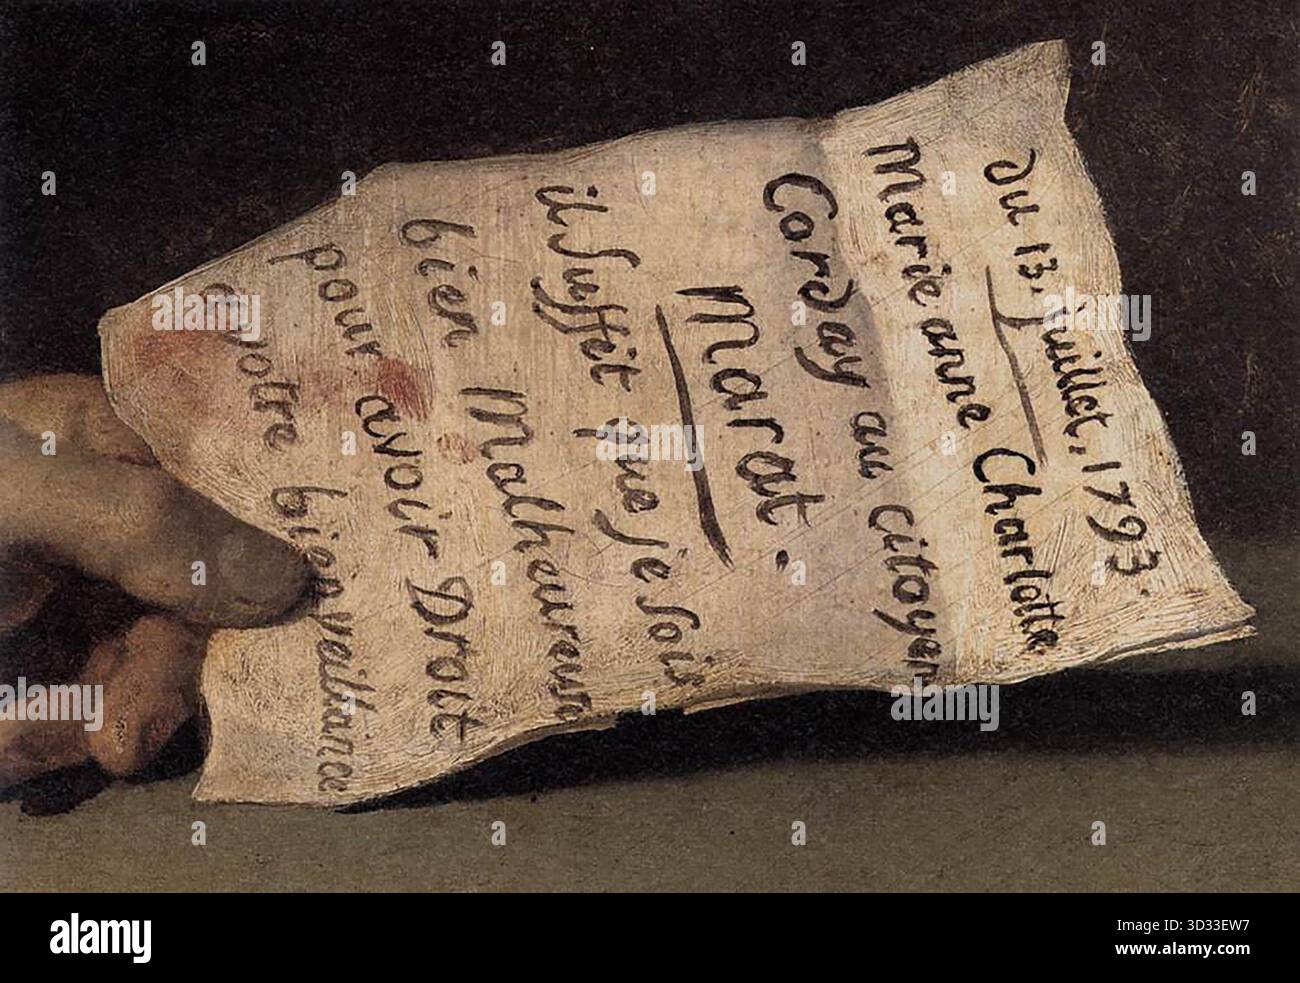 du 13. juillet, 1793.
Marie anne Charlotte
Corday au citoyen
Marat.
il suffit que je sois
bien Malheureuse
pour avoir Droit
a votre bienveillance
a
alamy
Image ID: 3D33EW7
www.alamy.com